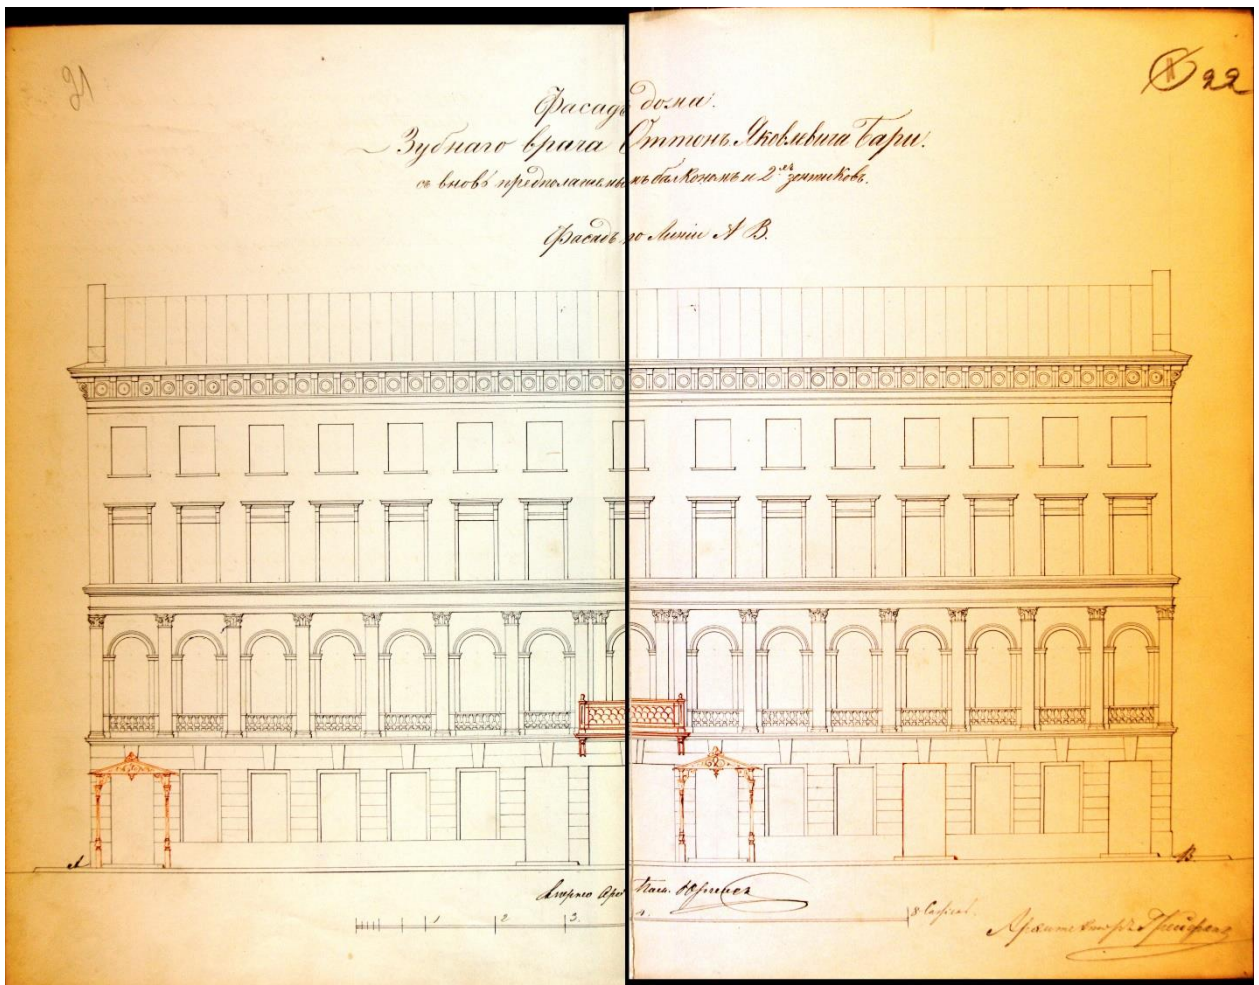 21
22
Фасадъ дома.
Зубнаго врача Оттонъ Яковлевича Бари.
съ вновь предполагаемымъ балкономъ и 2хъ зонтиковъ.
Фасадъ по линiи А В.
А
В
1 2 3. 4. 8 Сажень.
Архитекторъ